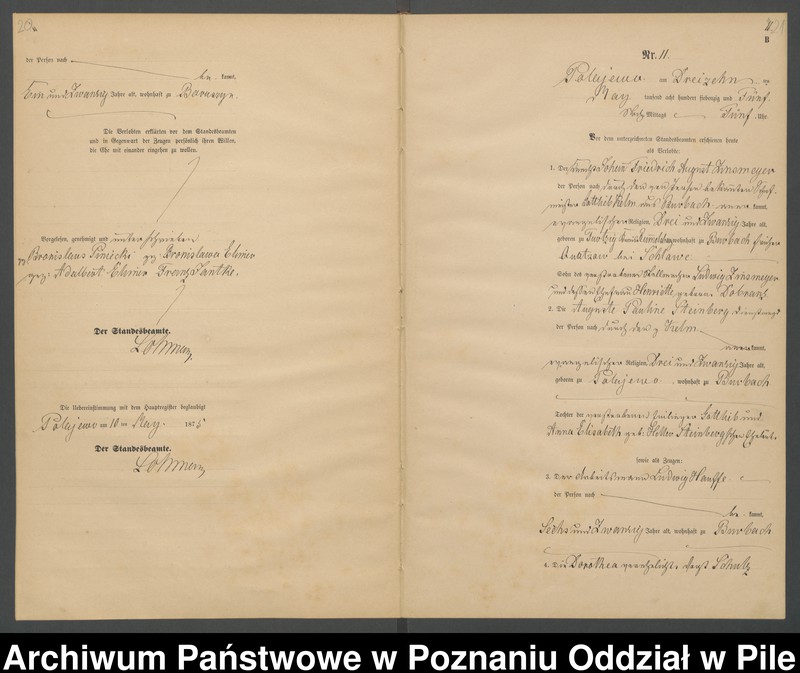 der Person nach
be kannt,
Ein und Zwanzig Jahre alt, wohnhaft zu Boruszyn.
Die Verlobten erklärten vor dem Standesbeamten
und in Gegenwart der Zeugen persönlich ihren Willen,
die Ehe mit einander eingehen zu wollen.
Vorgelesen, genehmigt und unterschrieben
gz Bronislaus Piniecki gz. Bronislawa Elmer
gez. Adalbert Elmer Franz Jantke.
Der Standesbeamte.
Die Uebereinstimmung mit dem Hauptregister beglaubigt
Polajewo am 10 ten May 1875
Der Standesbeamte.
B
Nr. 11.
Polajewo am Dreizehn
May tausend acht hundert siebenzig und Fünf
Mittags Fünf Uhr
Vor dem unterzeichneten Standesbeamten erschienen heute
als Verlobte:
1. Der Knecht Johann Friedrich August Zinsmeyer
der Person nach durch den von Person bekannten
Gottlieb Helm aus Burbach kannt,
evangelischer Religion, Drei und Zwanzig Jahre alt,
geboren zu wohnhaft zu Burbach früher
bei Schlawe
Sohn des verstorbenen Ludwig Zinsmeyer
und dessen Ehefrau Henriette, geboren
2. Die Auguste Pauline Steinberg Dienstmagd
der Person nach durch den g Helm
kannt,
evangelischer Religion, Drei und Zwanzig Jahre alt,
geboren zu Polajewo, wohnhaft zu Burbach
Tochter der verstorbenen Einlieger Gottlieb und
Anna Elisabeth geb. Heller Steinbergschen Eheleute.
sowie als Zeugen:
3. Der Arbeitsmann Ludwig Hauffe
der Person nach
be kannt,
Sechs und Zwanzig Jahre alt, wohnhaft zu Burbach
4. Die Dorothea verehelicht Schulz
Archiwum Państwowe w Poznaniu Oddział w Pile